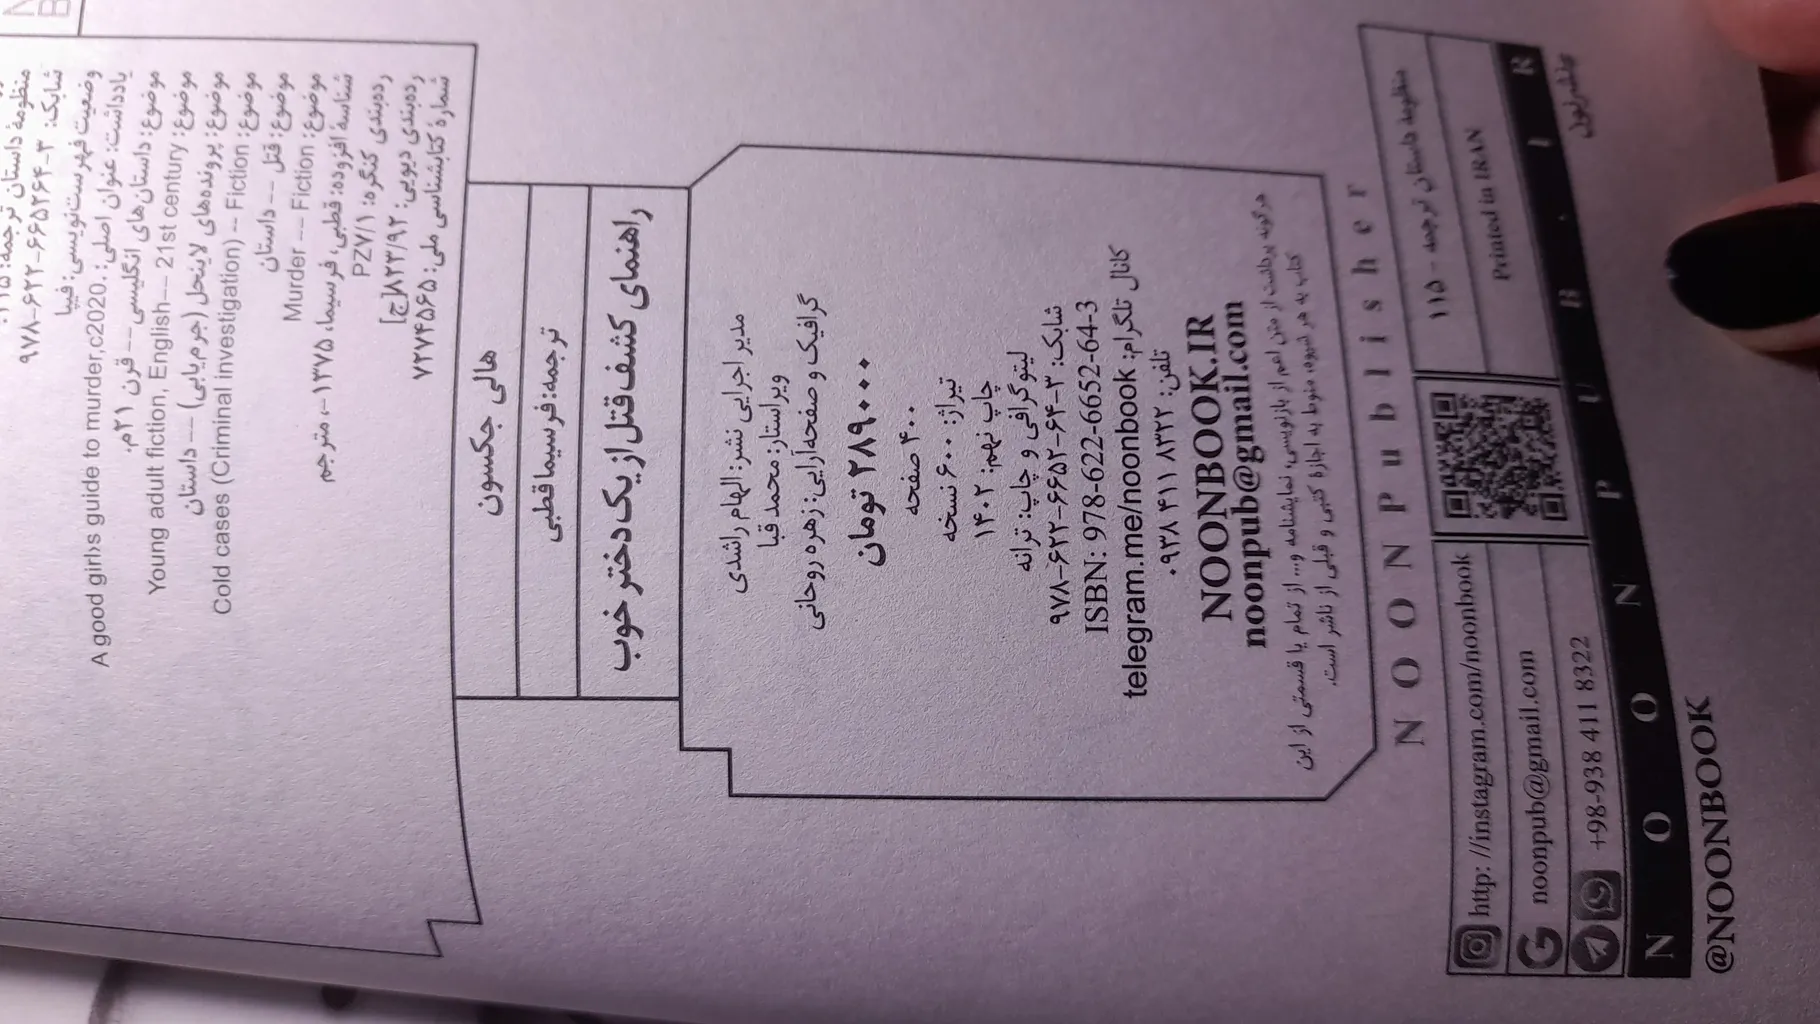 منظومهٔ داستان ترجمه: ۱۱۵.
شابک: ۳-۶۴-۶۶۵۲-۶۲۲-۹۷۸
وضعیت فهرست‌نویسی: فیپا
یادداشت: عنوان اصلی: .A good girl›s guide to murder,c2020
موضوع: داستان‌های انگلیسی -- قرن ۲۱م.
موضوع: Young adult fiction, English-- 21st century
موضوع: پرونده‌های لاینحل (جرم‌یابی) -- داستان
موضوع: Cold cases (Criminal investigation) -- Fiction
موضوع: قتل -- داستان
موضوع: Murder -- Fiction
شناسهٔ افزوده: قطبی، فرسیما، ۱۳۷۵-، مترجم
رده‌بندی کنگره: PZ۷/۱
رده‌بندی دیویی: ۸۲۳/۹۲[ج]
شمارهٔ کتابشناسی ملی: ۷۲۷۴۵۶۵
هالی جکسون
ترجمه: فرسیما قطبی
راهنمای کشف قتل از یک دختر خوب
مدیر اجرایی نشر: الهام راشدی
ویراستار: محمد قبا
گرافیک و صفحه‌آرایی: زهره روحانی
۲۸۹۰۰۰ تومان
۴۰۰ صفحه
تیراژ: ۶۰۰ نسخه
چاپ نهم: ۱۴۰۲
لیتوگرافی و چاپ: ترانه
شابک: ۳-۶۴-۶۶۵۲-۶۲۲-۹۷۸
ISBN: 978-622-6652-64-3
کانال تلگرام: telegram.me/noonbook
تلفن: ۸۳۲۲ ۴۱۱ ۰۹۳۸
NOONBOOK.IR
noonpub@gmail.com
هرگونه برداشت از متن اعم از بازنویسی، نمایشنامه و... از تمام یا قسمتی از این
کتاب به هر شیوه، منوط به اجازهٔ کتبی و قبلی از ناشر است.
NOON Publisher
منظومهٔ داستان ترجمه - ۱۱۵
Printed in IRAN
http: //instagram.com/noonbook
noonpub@gmail.com
+98-938 411 8322
NOON PUB.IR
@NOONBOOK